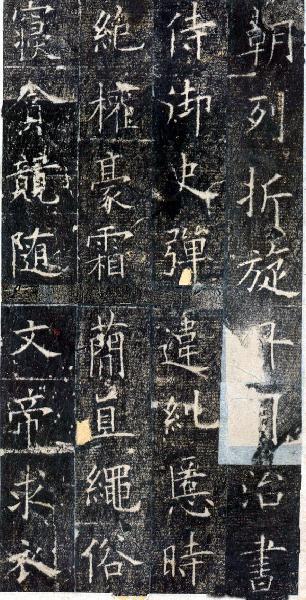 朝列折旋治書
侍御史彈違糺慝時
絶權豪霜蕳直繩俗
寢貪競隨文帝求衣